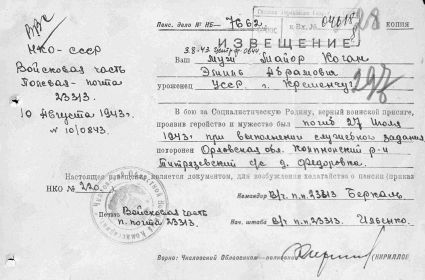 Пенс. дело № НБ- 7662
28
КОПИЯ
ИЗВЕЩЕНИЕ
НКО-СССР
Войсковая часть
Полевая - почта
23313.
10 Августа 1943г.
№ 10/0843.
Муж Майор Коган
Эмиль Абрамович
уроженец УССР г. Кременчуг
В бою за Социалистическую Родину, верный воинской присяге,
проявив геройство и мужество был погиб 27 Июля
1943г. при выполнении служебного задания
похоронен Орловская обл.
с/с д. Федоровка.
Настоящее извещение является документом, для возбуждения ходатайства о пенсии (приказ
НКО № 220.
Командир в/ч п.п. 23313 Беркаль
Печать Войсковая часть
п. почта 23313.
Нач. штаба в/ч п.п. 23313
Верно: Чкаловский Областн
(КИРИЛЛОВ